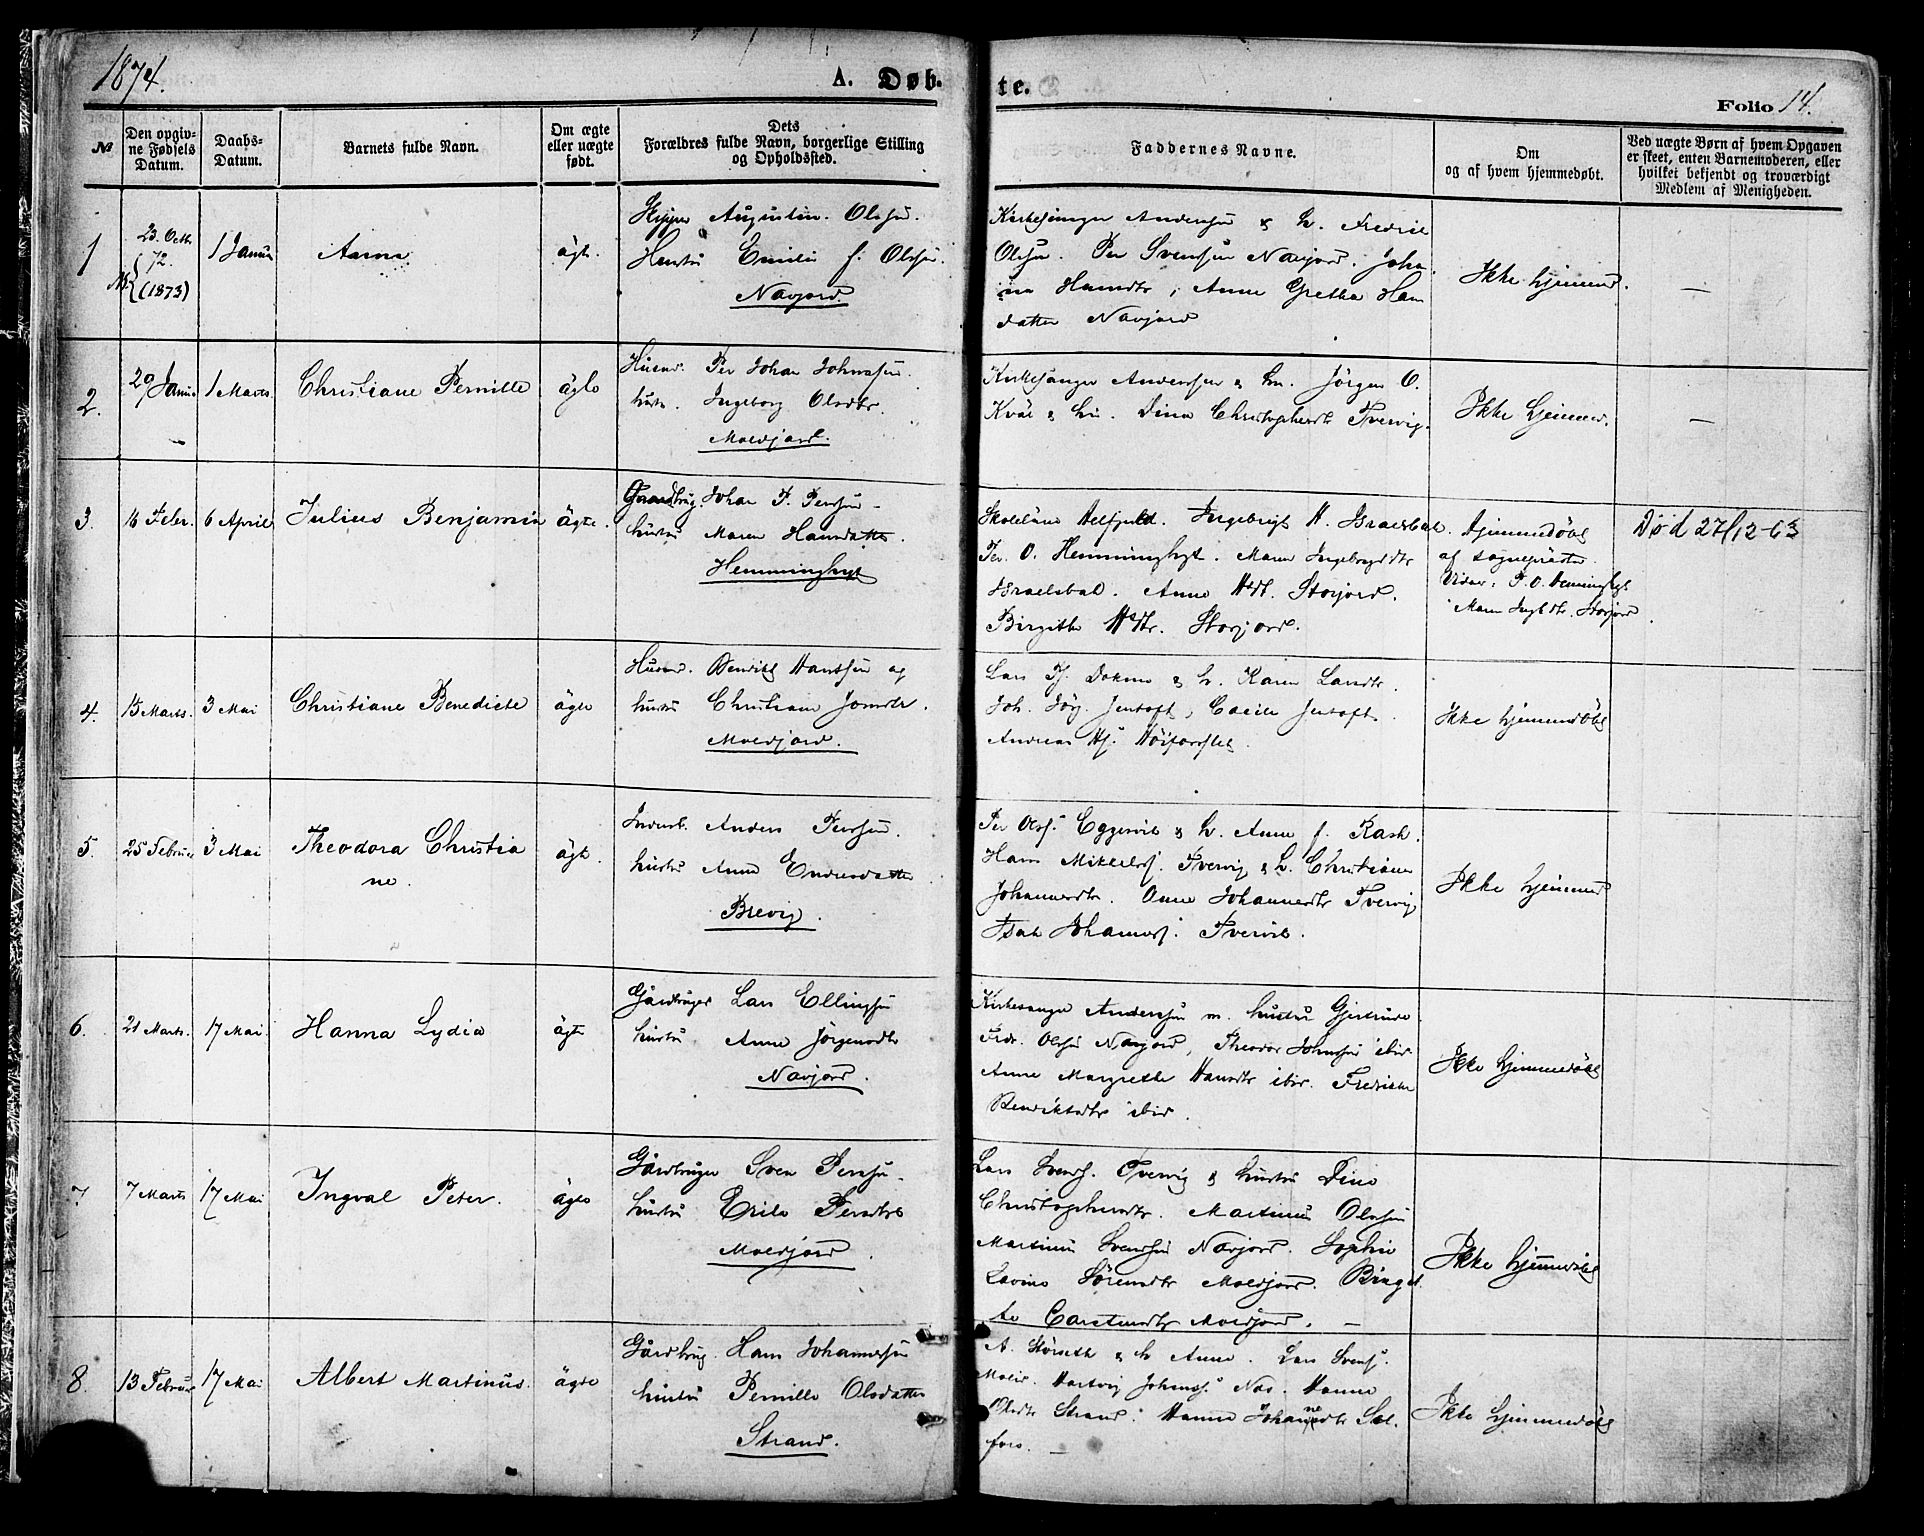 1874.
A. Døb-
te.
Folio 14.
№
Den opgiv-
ne Fødsels
Datum.
Daabs-
Datum.
Barnets fulde Navn.
Om ægte
eller uægte
født.
Dets
Forældres fulde Navn, borgerlige Stilling
og Opholdssted.
Faddernes Navne.
Om
og af hvem hjemmedøbt.
Ved uægte Børn af hvem Opgaven
er skeet, enten Barnemoderen, eller
hvilket bekjendt og troværdigt
Medlem af Menigheden.
1
23. Octb
72.
(1873)
1 Januar
Aarna
ägte.
Augustin. Olsen.
Hustru Emilie f. Olsen.
Navjord
Kirkesanger Andersen & h. Fredrik
Olsen. Per Svensen Navjord. Joha
na Hansdtr, Anne Gretha Han
datter Navjord
Ikke hjemmed.
—
2.
29 Januar
1 Marts
Christiane Pernille
ägte
Husm. Per Johan Johnsen.
hustr. Ingeborg Olsdtr.
Moldjord.
Kirkesanger Andersen & hu. Jörgen O.
Kväl & hu. Dina Christophersdtr Tvervig.
Ikke hjemmed.
—
3.
16 Febr.
6 April
Julius Benjamin
ägte.
Gaardbrug. Johan P. Persen -
hustru Maren Hansdatter.
Hemminghyt
Skolelärer Helfjeld. Ingebrigt H. Israelsbak.
Per. O. Hemminghyt. Maren Ingebrigtdtr
Israelsbak. Anne Hdt. Storjord.
Birgitte Hdtr. Storjord.
Hjemmedöbt
af Sognepräten.
Vidner: P. O. Hemminghyt
Maren Ingbdtr. Storjord.
Død 27/12-63
4.
15 Marts.
3 Mai
Christiane Benedicte
ägte
Husm. Bendikt Hansen og
hustru Christiane Jonsdtr.
Moldjord.
Lars Pj. Dokmo & h. Karen Larsdtr.
Joh. Jörg. Jentoft, Cecilie Jentoft.
Andreas Hs.
Ikke hjemmedöbt
5.
25 Februar
3 Mai
Theodora Christia
ne.
ägte.
Inderst. Anders Persen.
hustru Anne Endresdatter
Brevig.
Per Ols. Eggesvik & h. Anne f. Rask.
Hans Mikkels. Tvervig & h. Christiane
Johannesdtr. Ane Johannesdtr Tvervig
Isak Johannes. Tvervik.
Ikke hjemmed
6.
21 Marts.
17 Mai.
Hanna Lydia
ägte
Gårdbruger Lars Ellingsen
hustru Anne Jörgensdtr
Navjord.
Kirkesanger Andersen m. hustru Gjertrude
Fredr. Olsen Navjord, Theodor Johnsen ibid.
Anne Margrethe Hansdtr ibid. Fredrikke
Bendiktsdtr ibid.
Ikke hjemmedöbt
7.
7 Marts
17 Mai
Ingval Peter.
ägte
Gårdbruger Sven Persen.
hustru Erika Persdtr
Moldjord.
Lars Svends. Tvervig & hustru Dina
Christophersdtr. Martinus Olsen
Martinus Svendsen Navjord. Sophie
Lovina Sörensdtr Moldjord. Birgit
te Carstensdtr Moldjord. —
Ikke hjemmedöbt
8.
13 Februar
17 Mai
Albert Martinus.
ägte
Gårdbrug. Hans Johannesen
hustru Pernille Olsdatter
Strand.
A. Storseth & h Anne. Lars Svens.
Hartvig Johans. Nes. Hanna
Olsdtr Strand. Hanna Johannesdtr Sol
fors. —
Ikke hjemmedöbt